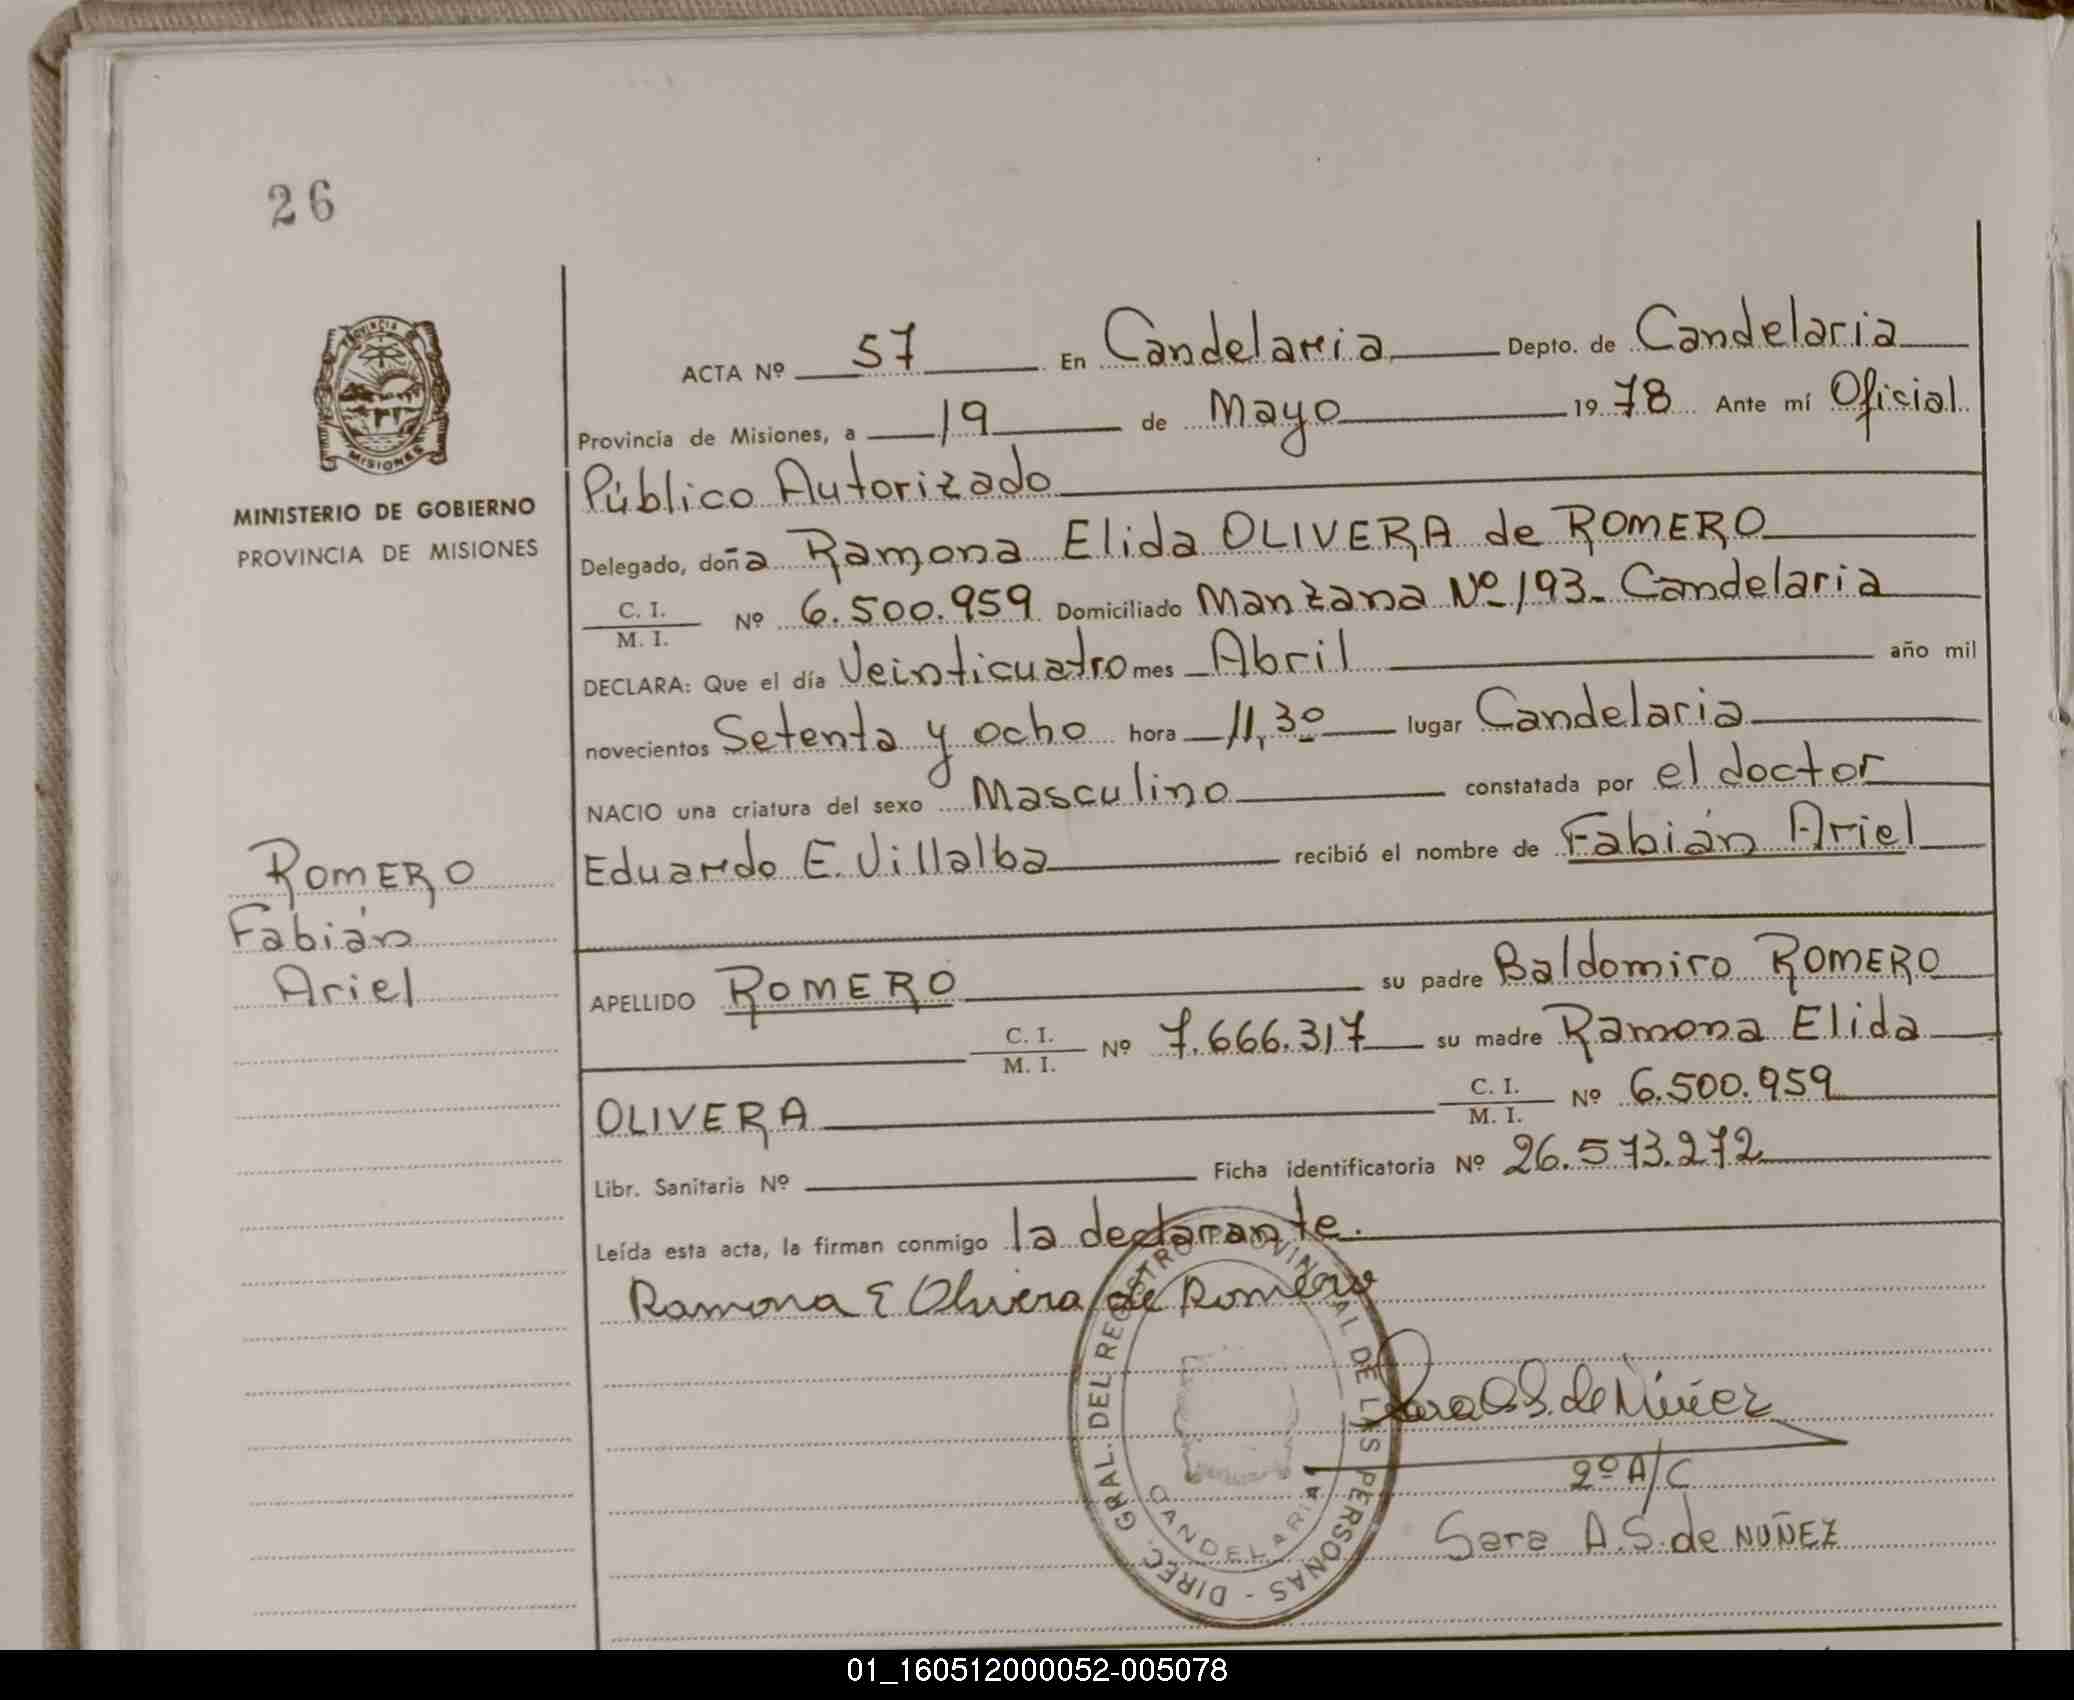 26
PROVINCIA
MISIONES
MINISTERIO DE GOBIERNO
PROVINCIA DE MISIONES
ACTA Nº 57 En Candelaria Depto. de Candelaria
Provincia de Misiones, a 19 de Mayo 1978 Ante mí Oficial
Público Autorizado
Delegado, doña Ramona Elida OLIVERA de ROMERO
C. I.
M. I. Nº 6.500.959 Domiciliado Manzana Nº 193- Candelaria
DECLARA: Que el día Veinticuatro mes Abril año mil
novecientos Setenta y ocho hora 11,30 lugar Candelaria
NACIO una criatura del sexo Masculino constatada por el doctor
Eduardo E. Villalba recibió el nombre de Fabián Ariel
ROMERO
Fabián
Ariel
APELLIDO ROMERO su padre Baldomiro ROMERO
C. I.
M. I. Nº 7.666.317 su madre Ramona Elida
OLIVERA C. I.
M. I. Nº 6.500.959
Libr. Sanitaria Nº Ficha identificatoria Nº 26.573.272
Leída esta acta, la firman conmigo la declarante.
Ramona E Olivera de Romero
DIREC. GRAL. DEL REGISTRO PROVINCIAL DE LAS PERSONAS -
CANDELARIA
Sara A S. de Núñez
2º A/C
Sara A. S. de NUÑEZ
01_160512000052-005078